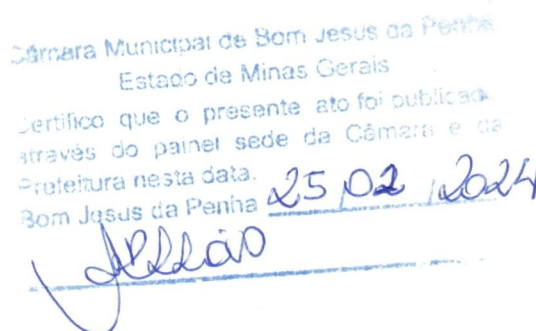 Câmara Municipal de Bom Jesus da Penha
Estado de Minas Gerais
Certifico que o presente ato foi publicado
através do painel sede da Câmara e da
Prefeitura nesta data.
Bom Jesus da Penha 25 / 02 / 2024